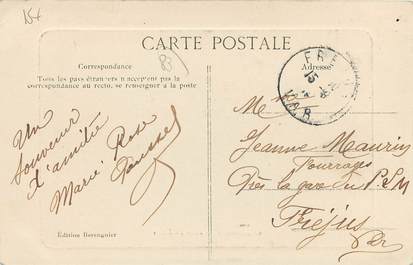 154
83
CARTE POSTALE
Correspondance
Tous les pays étrangers n'acceptent pas la
correspondance au recto, se renseigner à la poste
Adresse
FRE
15
VAR
Un
souvenir
d'amitié
Marie Rose
Melle
Jeanne Maurin
Près la gare du P.L.M
Fréjus
Var
Édition Berenguier